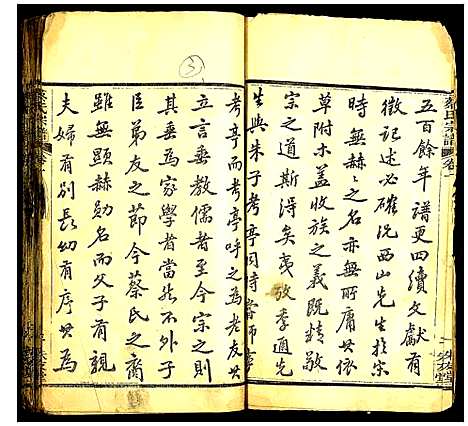 五百餘年譜更四續文獻有
徵記述必確況西山先生於宋
時無赫赫之名亦無所庸其依
草附木蓋收族之義既精敬
宗之道斯得矣夷攷季通先
生與朱子考亭同時嘗師事
考亭而考亭呼之為老友其
立言垂教儒者至今宗之則
其垂為家學者當然不外子
臣弟友之節今蔡氏之裔
雖無顯赫勛名而父子有親
夫婦有別長幼有序其為
蔡氏宗譜
3